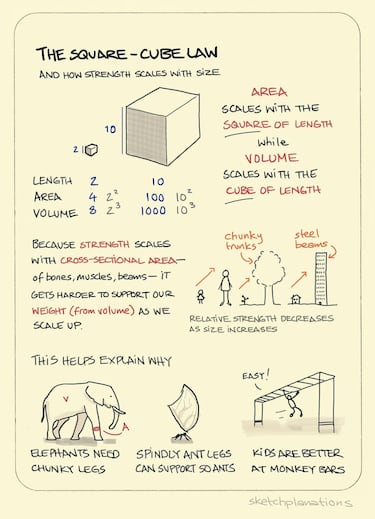 THE SQUARE-CUBE LAW
AND HOW STRENGTH SCALES WITH SIZE
2
10
AREA
SCALES WITH THE
SQUARE OF LENGTH
while
VOLUME
SCALES WITH THE
CUBE OF LENGTH
LENGTH 2 10
AREA 4 2² 100 10²
VOLUME 8 2³ 1000 10³
BECAUSE STRENGTH SCALES
WITH CROSS-SECTIONAL AREA—
of bones, muscles, beams— IT
GETS HARDER TO SUPPORT OUR
WEIGHT (from volume) AS WE
SCALE UP.
chunky
trunks
steel
beams
RELATIVE STRENGTH DECREASES
AS SIZE INCREASES
THIS HELPS EXPLAIN WHY
V
A
ELEPHANTS NEED
CHUNKY LEGS
SPINDLY ANT LEGS
CAN SUPPORT 50 ANTS
EASY!
KIDS ARE BETTER
AT MONKEY BARS
sketchplanations